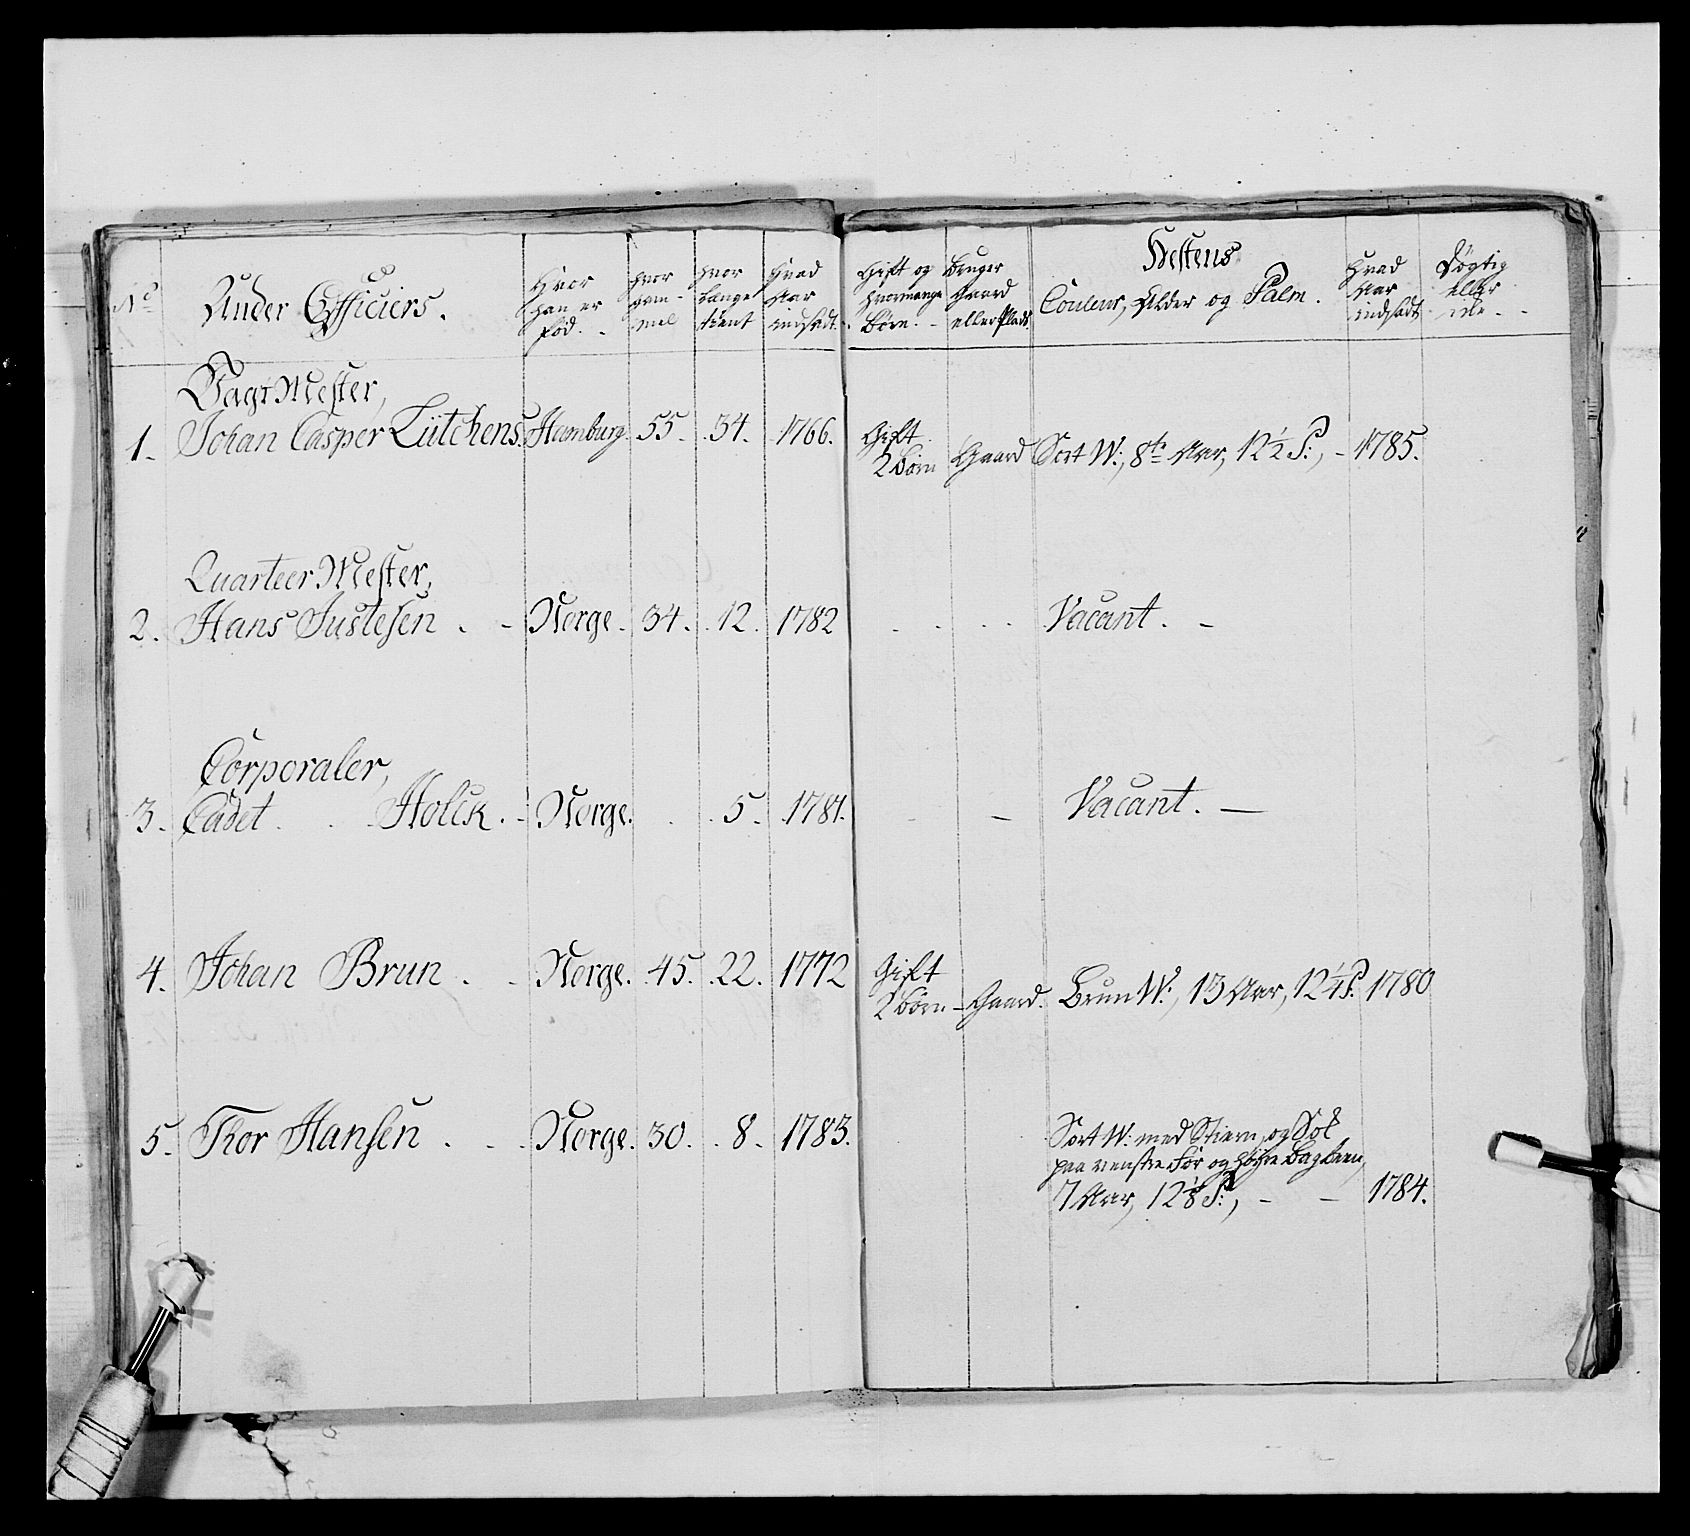 No
Under Officiers.
Hvor
han er
fød.
hvor
gam-
mel
hvor
længe
tient
Hvad
Aar
indsadt.
Gift og
hvormange
Børn.
Bruger
Gaard
eller Plads
Hestens
Couleur, Alder og Palm.
Hvad
Aar
indsadt
Døgtig
eller
ei.
Vagt Mester,
1. Johan Casper Lütchens. Hamburg. 55. 34. 1766. Gift 2 Børn Gaard Sort W:, 8te Aar, 12 1/2 P:, - 1785.
Quarteer Mester,
2. Hans Justesen . - Norge. 34. 12. 1782 Vacant. -
Corporaler,
3. Cadet . . Holck. - Norge. . 5. 1781. - Vacant. -
4. Johan Brun . - Norge. 45. 22. 1772 Gift 2 Børn - Gaard. Brun W:, 13 Aar, 12 1/4 P. 1780
5. Thor Hansen . - Norge. 30. 8. 1783.
Sort W: med Stiern, og Sok
paa venstre For og høire Bagbeen,
7 Aar, 12 1/8 P:, - - 1784.